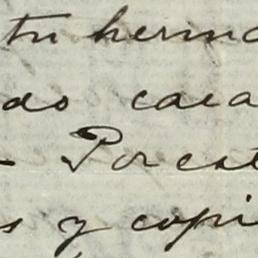 tu herma
do caca
Por est
s y copi